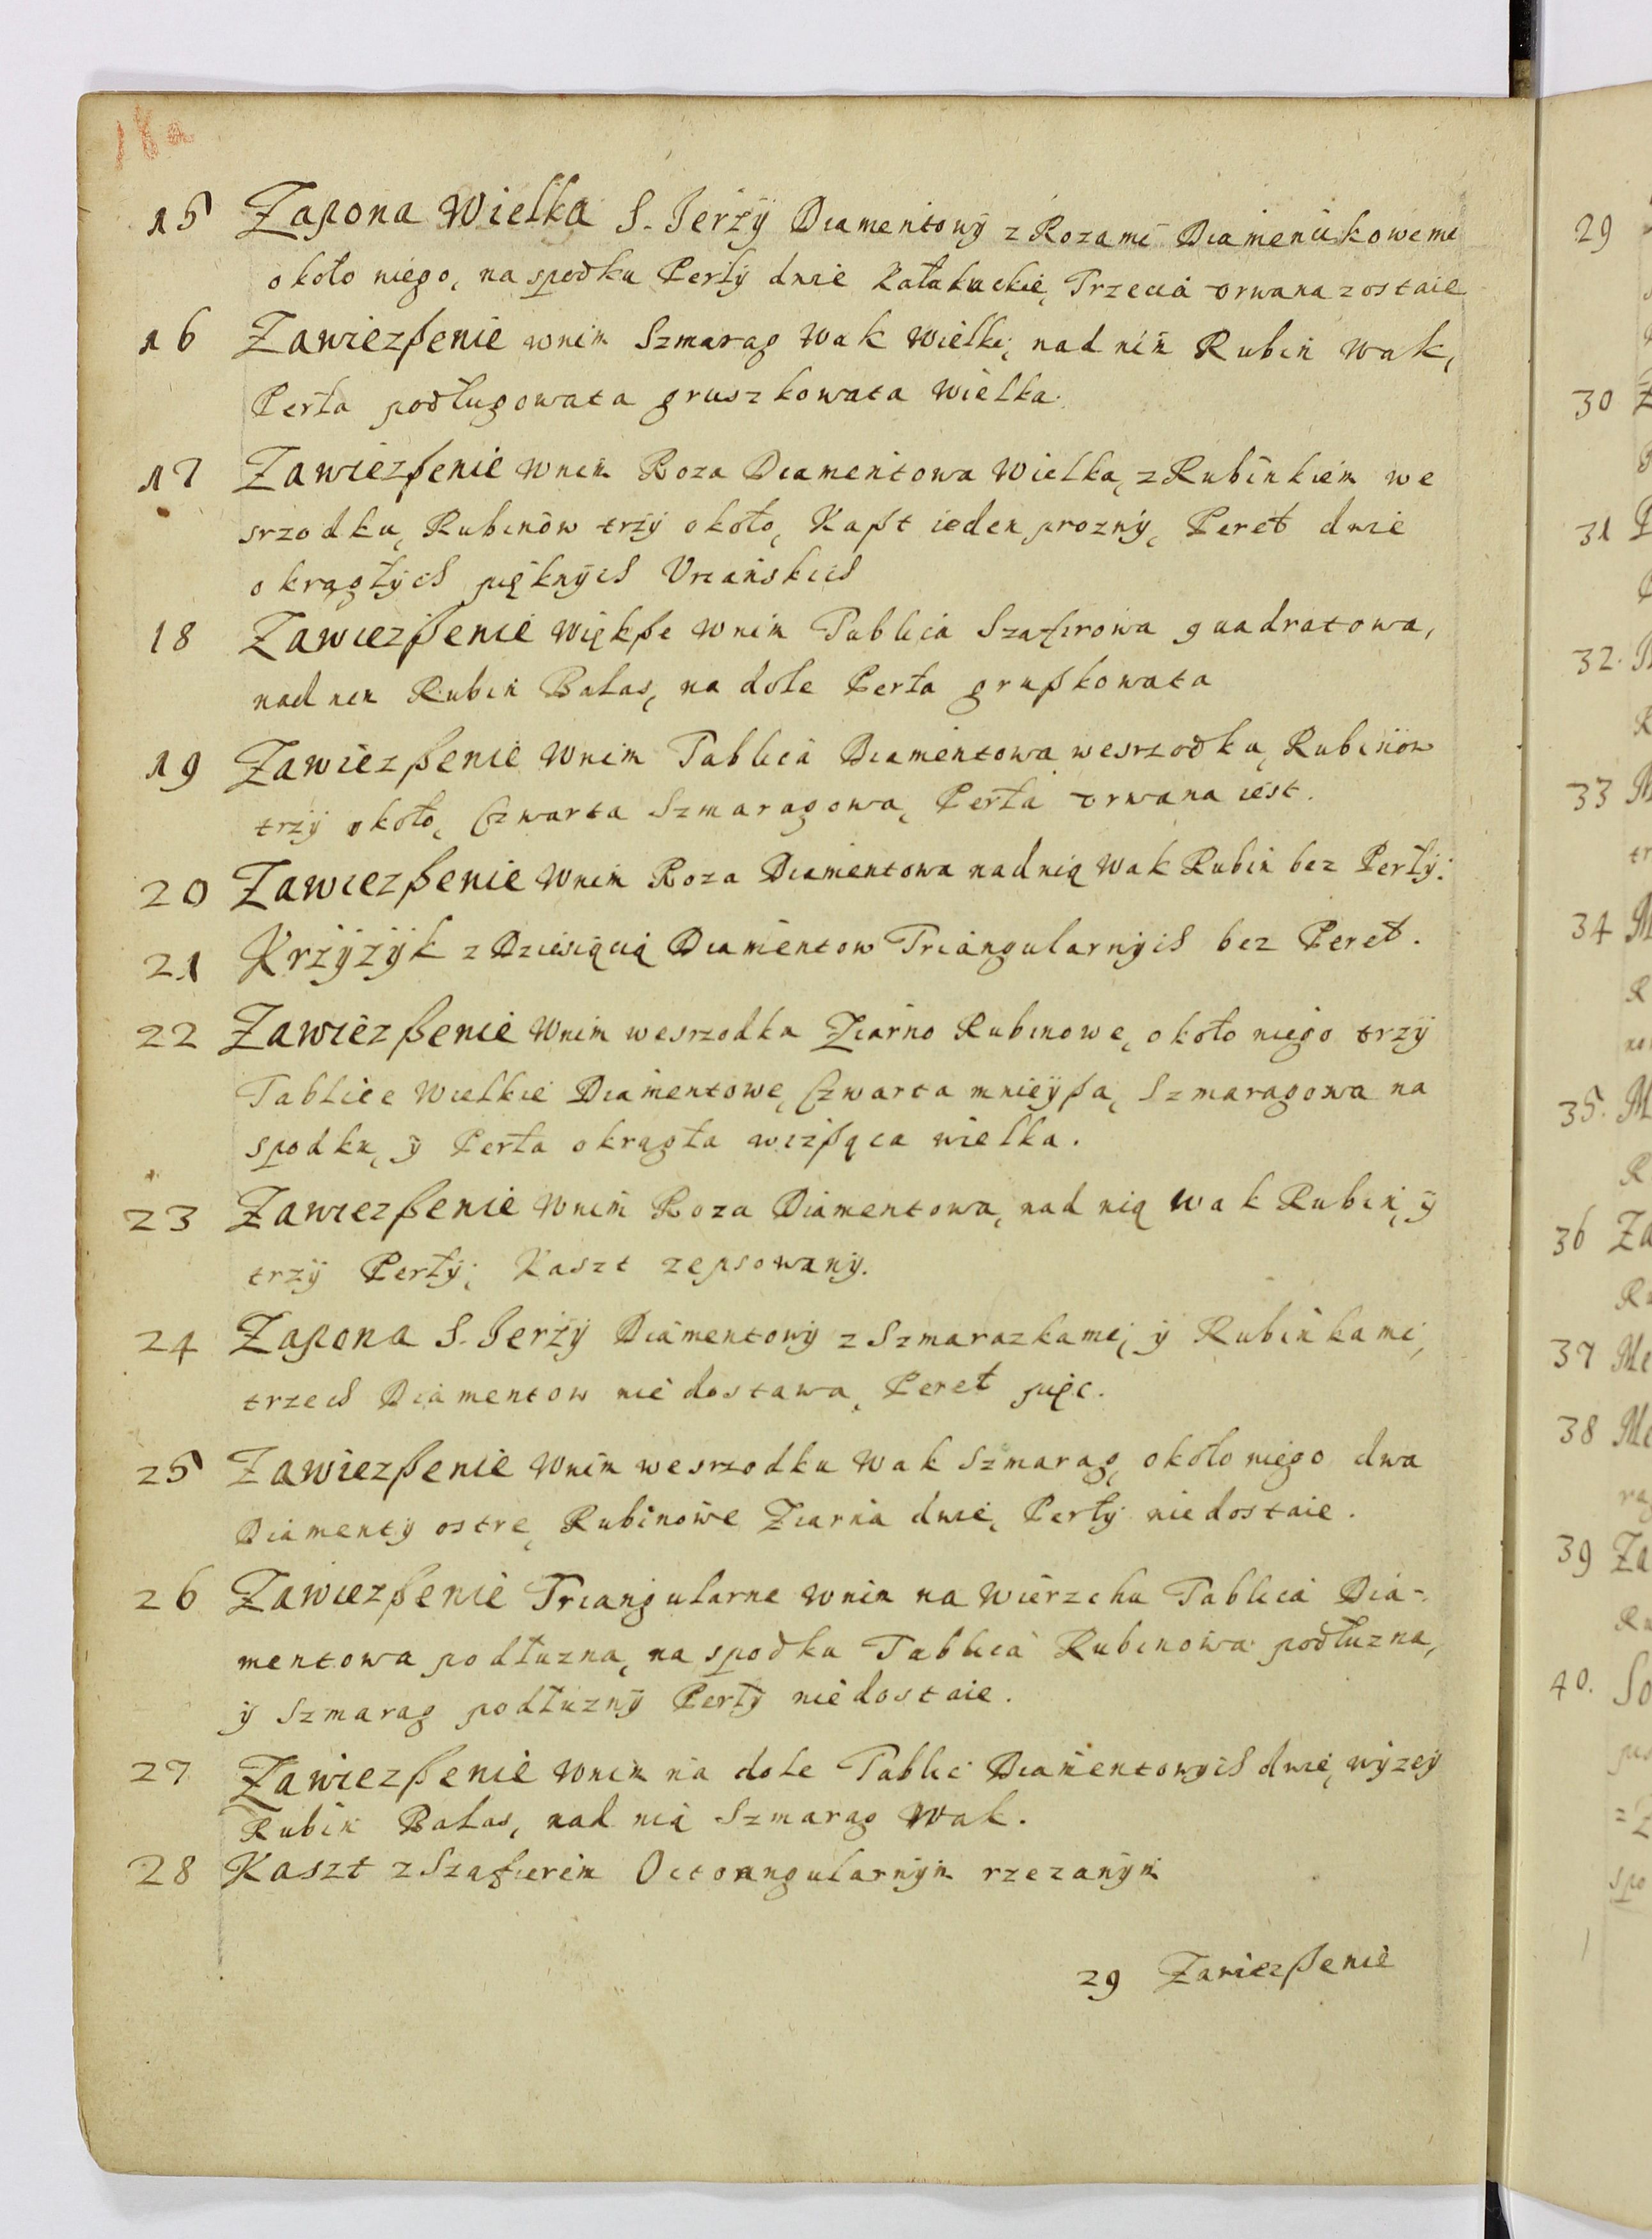 18a
15 Zapona Wielka S. Jerzÿ Diamentowÿ z Rozami Diamencikowemi
około niego, na spodku Perłÿ dwie Kałakuckie, Trzecia vrwana zostaie
16 Zawiezßenie wnim Szmarag Wak Wielki, nad nim Rubin Wak,
Perła podługowata gruszkowata Wielka.
17 Zawiezßenie wnim Roza Diamentowa Wielka, z Rubinkiem we
srzodku, Rubinow trzÿ około, Kaßt ieden proznÿ, Pereł dwie
okrągłÿch pięknÿch Vriańskich
18 Zawiezßenie więkße wnim Tablica Szafirowa quadratowa,
nad nim Rubin Balas, na dole Perła grußkowata
19 Zawiezßenie wnim Tablica Diamentowa wesrzodku, Rubinow
trzÿ około, Czwarta Szmaragowa, Perła vrwana iest.
20 Zawiezßenie wnim Roza Diamentowa nad nią Wak Rubin bez Perłÿ.
21 Krzÿzÿk z Dziesiącią Diamentow Triangularnÿch bez Pereł.
22 Zawiezßenie wnim wesrzodku Ziarno Rubinowe, około niego trzÿ
Tablice Wielkie Diamentowe, Czwarta mnieÿßa, Szmaragowa na
spodku, ÿ Perła okrągła wizßąca wielka.
23 Zawiezßenie wnim Roza Diamentowa, nad nią Wak Rubin, ÿ
trzÿ Perłÿ, Kaszt zepsowanÿ.
24 Zapona S. Jerzÿ Diamentowÿ z Szmarazkami, ÿ Rubinkami,
trzech Diamentow nie dostawa, Pereł pięc.
25 Zawiezßenie wnim wesrzodku Wak Szmarag, około niego dwa
Diamentÿ ostre, Rubinowe Ziarna dwie, Perłÿ niedostaie.
26 Zawiezßenie Triangularne wnim na Wierzchu Tablica Dia-
mentowa podłuzna, na spodku Tablica Rubinowa podłuzna,
ÿ Szmarag podłuznÿ Perłÿ niedostaie.
27 Zawiezßenie wnim na dole Tablic Diamentowÿch dwie, wÿzeÿ
Rubin Balas, nad nią Szmarag Wak.
28 Kaszt z Szafierem Octoangularnÿm rzezanÿm
29 Zawiezßenie
29
30
31
32.
33
34
35.
36
37
38
39
40.